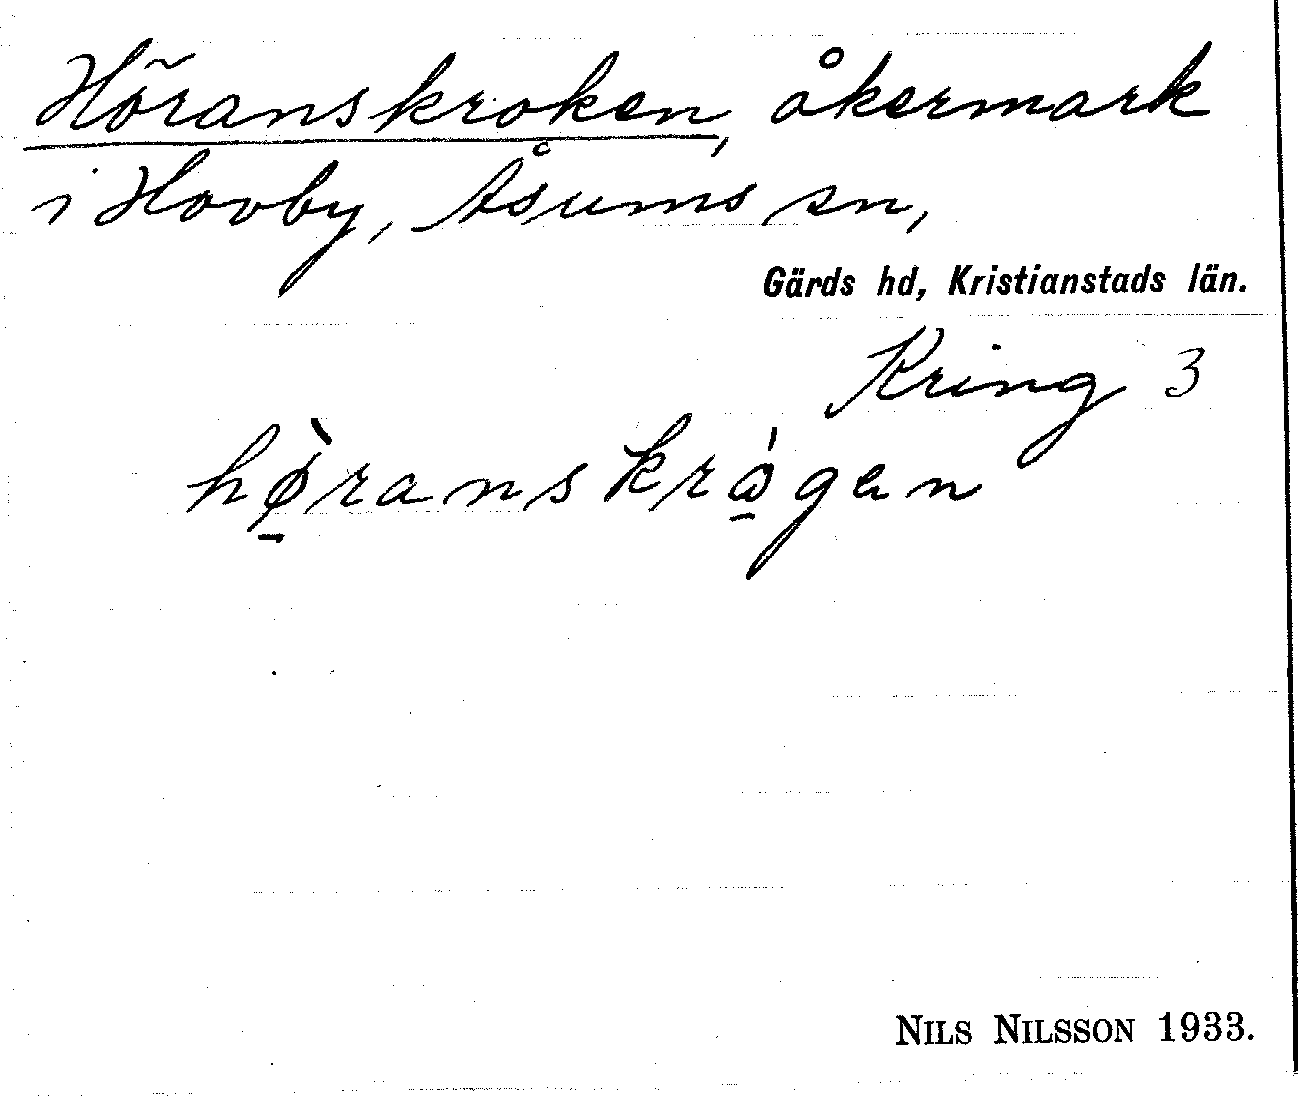 Höranskroken, åkermark
i Hovby, Åsums sn,
Gärds hd, Kristianstads län.
Kring 3
hø̠̀ranskrǫ̠́gen
NILS NILSSON 1933.